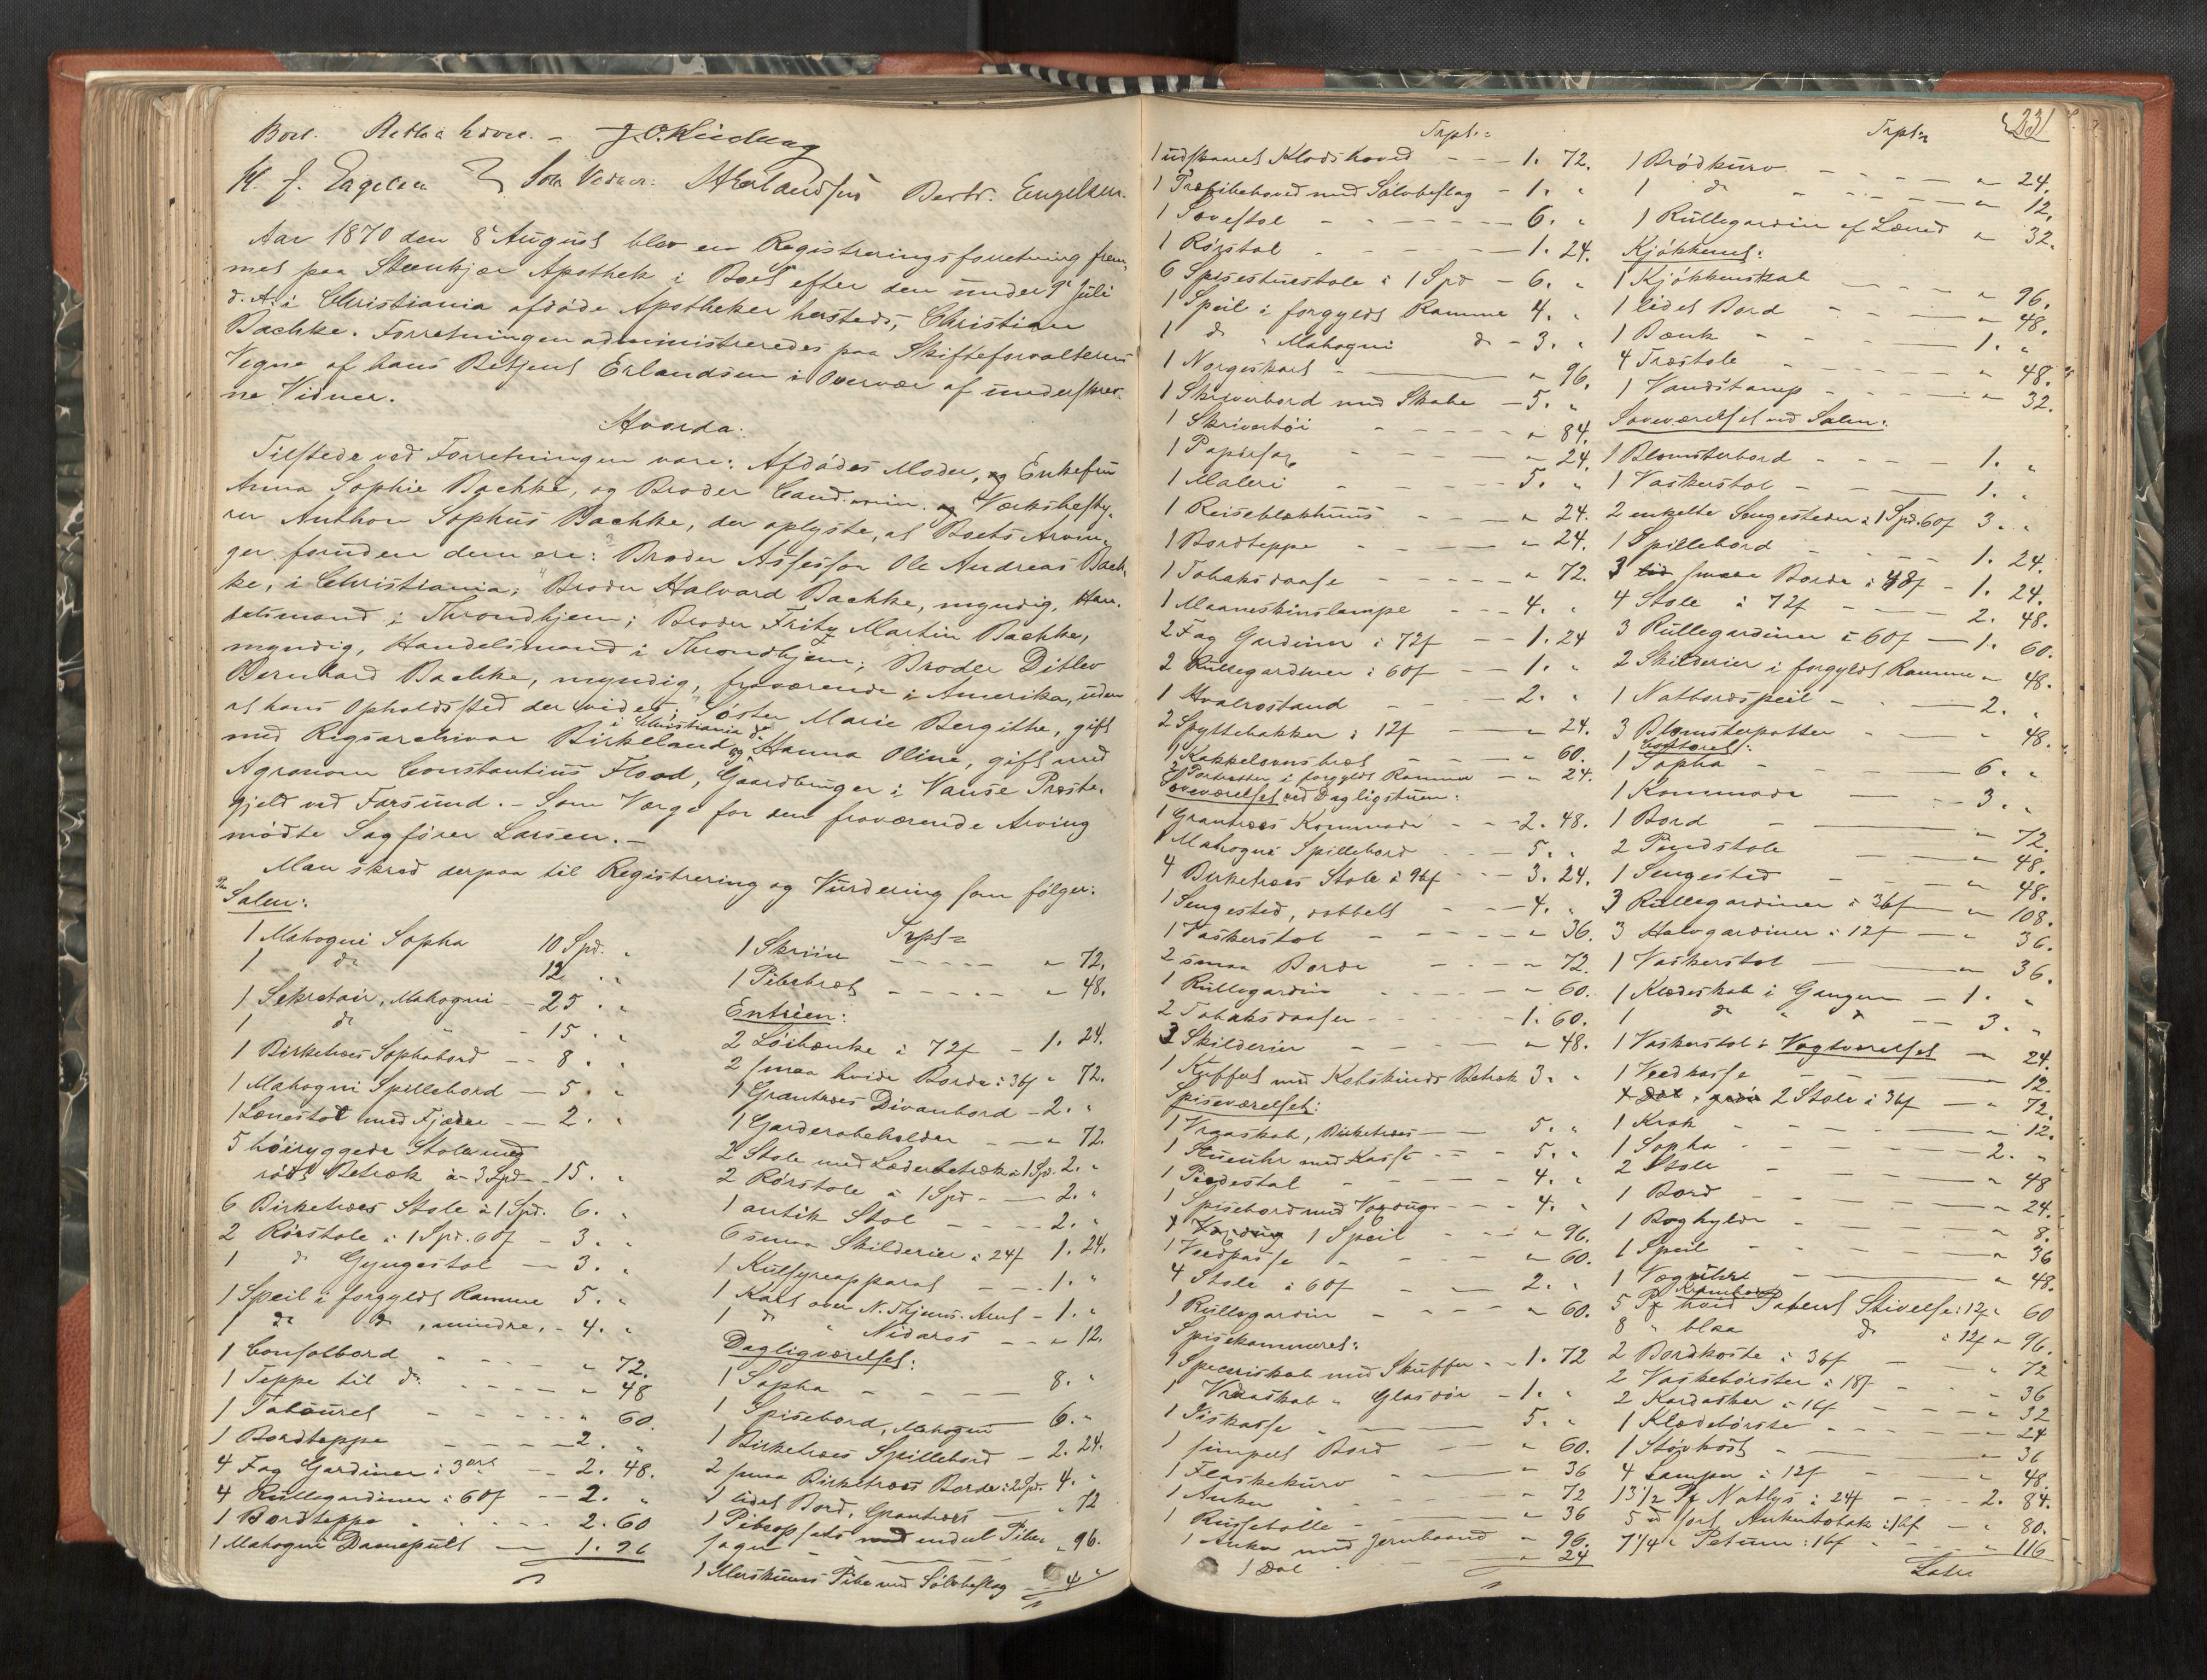 J. O. Lindberg
Som Vidner: Erlandsen Bertr. Engelsen.
Aar 1870 den 8de August blev en Registreringsforretning frem-
met paa Steenkjær Apothek i Boet efter den under 9de Juli
d. A. i Christiania afdøde Apotheker hersteds, Christian
Bachke. Forretningen administreredes paa Skifteforvalterens
Vegne af hans Betjent Erlandsen i Overvær af underskrev-
ne Vidner.
Hvorda:
Tilstede ved Forretningen vare: Afdødes Moder, Enkefru
Anna Sophie Bachke, og Broder Cand. min. og Værksbesty-
rer Anthon Sophus Bachke, der oplyste, at Boets Arvin-
ger foruden dem ere: Broder Assessor Ole Andreas Bach-
ke, i Christiania; Broder Halvard Bachke, myndig, Han-
delsmand i Throndhjem; Broder Fritz Martin Bachke,
myndig, Handelsmand i Throndhjem; Broder Ditlev
Bernhard Bachke, myndig, fraværende i Amerika, uden
at hans Opholdssted der vides; Søster Marie Bergithe, gift
med Rigsarchivar Birkeland i Christiania og do Hanna Oline, gift med
Agronom Constantius Flood, Gaardbruger i Vanse Præste-
gjeld ved Farsund. – Som Værge for den fraværende Arving
mødte Sagfører Larsen. –
Man skred derpaa til Registrering og Vurdering som følger:
Salen:
1 Mahogni Sopha 10 Spd. "
1 do 12 . "
1 Sekretair, Mahogni - - 25 . "
1 do " - 15 . "
1 Birketræes Sophabord - - 8 . "
1 Mahogni Spillebord - 5 . "
1 Lænestol med Fjædre - - 2 . "
5 høiryggede Stole med
rødt Betræk à 3 Spd - 15 . "
6 Birketræes Stole à 1 Spd. 6. "
2 Rørstole à 1 Spd. 60 f - 3. "
1 do Gyngestol - 3. "
1 Speil i forgyldt Ramme 5. "
1 do do, mindre, - 4. "
1 Consolbord - - - " 72.
1 Teppe til do - - - " 48
1 Tabouret - - - " 60.
1 Bordteppe - - - 2. "
4 Fag Gardiner à 3 ort - - 2. 48.
4 Rullegardiner à 60 f - - 2. "
1 Bordteppe - - - 2. 60
1 Mahogni Damepult - 1. 96
Trpt =
1 Skriin - - - " 72.
1 Pibebræt - - - " 48.
Entrien:
2 Løibænke à 72 f - 1. 24.
2 smaa hvide Borde à 36 f " 72.
1 Grantræes Divanbord - 2. "
1 Garderobeholder - - " 72
2 Stole med Læderbetræk à 1 Spd. 2. "
2 Rørstole à 1 Spd - - 2. "
1 antik Stol - - - 2. "
6 smaa Skilderier à 24 f 1. 24.
1 Kulsyreapparat - - 1. "
1 Kart over N. Thjems. Amt - 1. "
1 do " Nidaros - - " 12.
Dagligværelset:
1 Sopha - - - 8. "
1 Spisebord, Mahogni - 6. "
1 Birketræes Spillebord - 2. 24.
2 smaa Birketræes Borde à 2 Spd. 4. "
1 lidet Bord, Grantræes - " 72
1 Pibeopsats med endel Piber " 96.
1 Merskums Pibe med Sølvbeslag - 4 "
231
Trpt =
1 udskaaret Klodshoved - - - 1. 72.
1 Træpibehoved med Sølvbeslag - 1. "
1 Sovestol - - - 6. "
1 Rørstol - - - 1. 24.
6 Spisestuestole à 1 Spd - 6. "
1 Speil i forgyldt Ramme 4. "
1 do " Mahogni do - 3. "
1 Norgeskart - - " 96.
1 Skriverbord med Skabe - 5. "
1 Skrivertøi - - - " 84.
1 Papirsax - - - " 24.
1 Maleri - - - 5. "
1 Reiseblækhuus - - - " 24.
1 Bordteppe - - - " 24.
1 Tobaksdaase - - - " 72.
1 Maaneskinslampe - - - 4. "
2 Fag Gardiner à 72 f - - 1. 24
2 Rullegardiner à 60 f - - 1. "
1 Hvalrostand - - - 2. "
2 Spyttebakker à 12 f - " 24.
1 Kakkelovnsbræt - - - " 60.
2 Portrætter i forgyldt Ramme - - " 24.
Soveværelset ved Dagligstuen:
1 Grantræes Kommode - - - 2. 48.
1 Mahogni Spillebord - - - 5. "
4 Birketræes Stole à 96 f - - - 3. 24.
1 Sengested, dobbelt - - - 4. "
1 Vaskerstol - - - " 36.
2 smaa Borde - - - " 72.
1 Rullegardin - - - " 60.
2 Tobaksdaaser - - - 1. 60.
3 Skilderier - - - " 48.
1 Kuffert med Kalskinds Betræk 3. "
Spiseværelset:
1 Vraaskab, Birketræes - - 5. "
1 Stueuhr med Kasse - - - 5. "
1 Piedestal - - - 4. "
1 Spisebord med Voxdug - - - 4. "
1 Speil - - - " 96.
1 Vedkasse - - - " 60.
4 Stole à 60 f - - 2. "
1 Rullegardin - - - " 60.
Spisekammeret:
1 Speceriskab med Skuffer - - 1. 72
1 Vraaskab " Glasdør - 1. "
1 Iiskasse - - - 5. "
1 simpelt Bord - - " 60.
1 Flaskekurv - - - " 36
1 Anker - - - " 72
1 Russebolle - - - " 36
1 Anker med Jernbaand " 96.
1 Dal - - - " 24
Trpt =
1 Brødkurv - - - " 24.
1 do - - - " 12.
1 Rullegardin af Lærred " 32.
Kjøkkenet:
1 Kjøkkenskab - - - " 96.
1 lidet Bord - - - " 48.
1 Bænk - - - 1. "
4 Træstole - - - " 48.
1 Vandstamp - - - " 32.
Soveværelset ved Salen:
1 Blomsterbord - - - 1. "
1 Vaskerstol - - - 1. "
2 enkelte Sengesteder à 1 Spd. 60 f 3. "
1 Spillebord - - - 1. 24.
3 smaa Borde à 48 f - 1. 24.
4 Stole à 72 f - - - 2. 48.
3 Rullegardiner à 60 f - 1. 60.
2 Skilderier i forgyldt Ramme " 48.
1 Natbordspeil - - - 2. "
3 Blomsterpotter - - " 48.
Contoret:
1 Sopha - - - 6. "
1 Kommode - - - 3. "
1 Bord - - - " 72.
2 Pindstole - - - " 48.
1 Sengested - - - " 48.
3 Rullegardiner à 36 f - " 108.
3 Halvgardiner à 12 f - " 36.
1 Vaskerstol - - - " 36.
1 Klædeskab i Gangen - 1. "
1 do " do - - 3. "
1 Vaskerstol i Vagtværelset - " 24.
1 Veedkasse - - - " 12.
2 Stole à 36 f - " 72.
1 Krak - - - " 12.
1 Sopha - - - 2. "
2 Stole - - - " 48
1 Bord - - - " 24.
1 Boghylde - - - " 8.
1 Speil - - - " 36
1 Væguhr - - - " 48.
Krambod
5 Pk hvid Patent Stivelse à 12 f " 60
8 " blaa do à 12 f " 96.
2 Bordkoste à 36 f - - " 72
2 Vaskebørster à 18 f - - " 36
2 Kardasker à 16 f - - " 32
1 Klædebørste - - - " 24
1 Støvkost - - - " 36
4 Lamper à 12 f - - " 48.
13 1/2 Pk Natlys à 24 f - - 2. 84.
5 " sort Ankertobak à 16 f - " 80.
7 1/4 " Petum à 16 f - - " 116
Latus